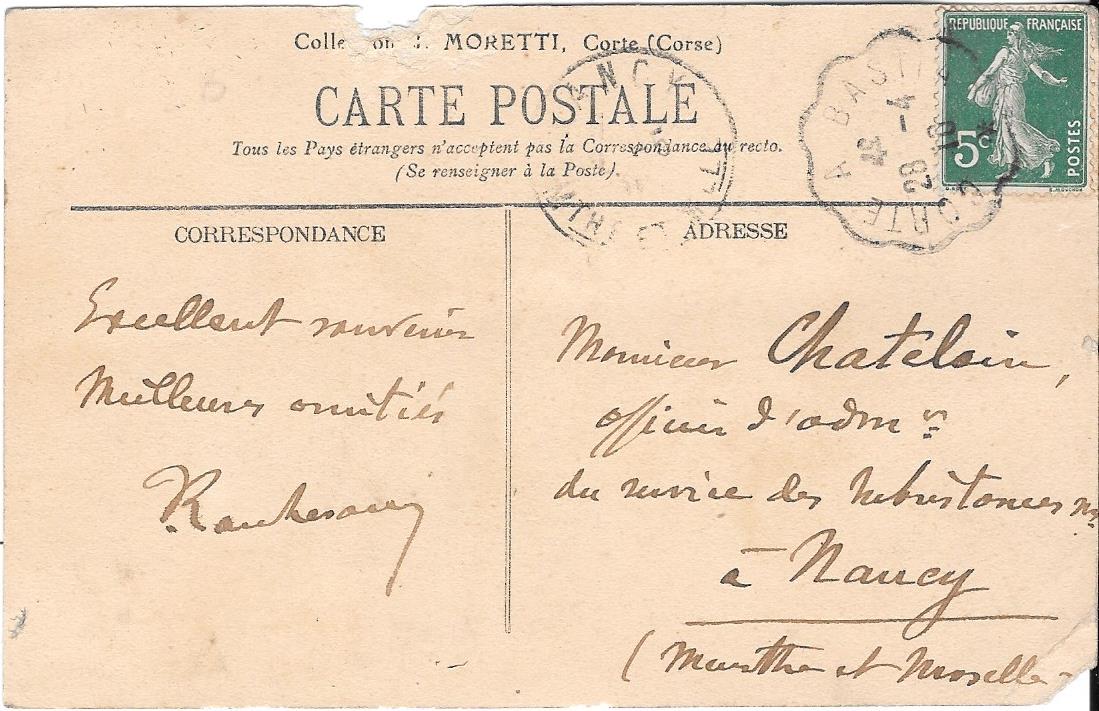 Colle on J. MORETTI, Corte (Corse)
CARTE POSTALE
Tous les Pays étrangers n'acceptent pas la Correspondance au recto.
(Se renseigner à la Poste).
RÉPUBLIQUE FRANÇAISE
5c
POSTES
CORTE A BASTIA
28 -4
10
NCY
CORRESPONDANCE
ADRESSE
Excellent souvenir
Meilleures amitiés
Monsieur Chatelain,
officier d'admon
du service des subsistances
à Nancy
(Meurthe et Moselle